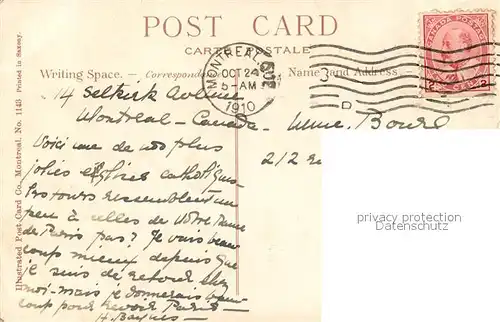 POST CARD
CARTE POSTALE
Writing Space. — Correspondance
Name and Address
MONTREAL
OCT 24
5-AM
1910
CANADA POSTAGE
2 2
D
14 Selkirk Avenue
Montreal - Canada -
Voici une de nos plus
jolies églises catholiques -
les tours ressemblent un
peu à celles de Notre Dame
de Paris pas? Je vais beau
coup mieux depuis que
je suis de retour chez
moi - mais je donnerais beau
coup pour revoir Paris -
H.
Mme.
212
Illustrated Post Card Co., Montreal. No. 1143 Printed in Saxony.
privacy protection
www.oldthing.de